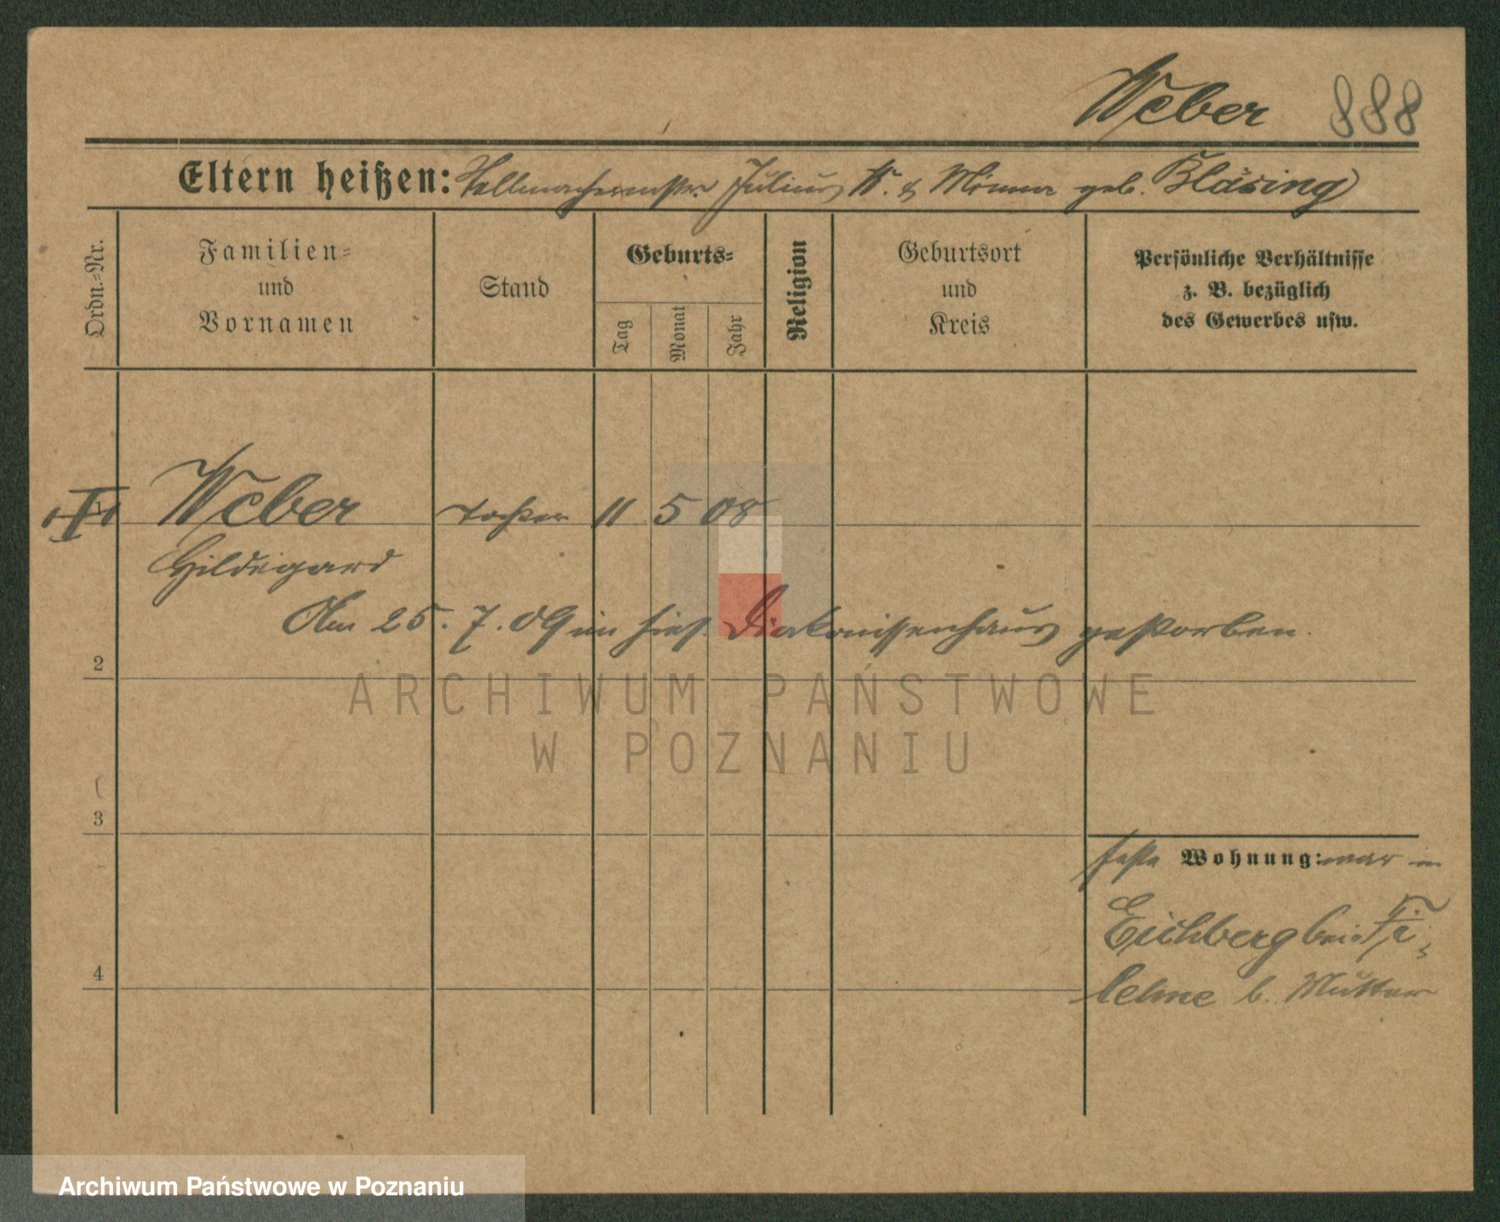 Weber 888
Eltern heißen: Stellmachermstr. Julius W. & Minna geb. Bläsing
Ordn.-Nr.
Familien-
und
Vornamen
Stand
Geburts-
Tag
Monat
Jahr
Religion
Geburtsort
und
Kreis
Persönliche Verhältnisse
z. B. bezüglich
des Gewerbes usw.
1 Weber Tochter 11 5 08
Hildegard
Am 25. 7. 09 im hies. Diakonissenhaus gestorben.
2
ARCHIWUM PAŃSTWOWE
W POZNANIU
3
feste Wohnung: war in
Eichberg bei Fi-
lehne b. Mutter
4
Archiwum Państwowe w Poznaniu